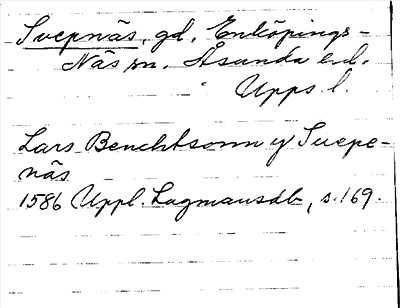 Svepnäs, gd, Enköpings-
Näs sn. Åsunda hd.
Upps l.
Lars Benchtsonn y Suepe-
näs
1586 Uppl. Lagmansdb, s. 169.